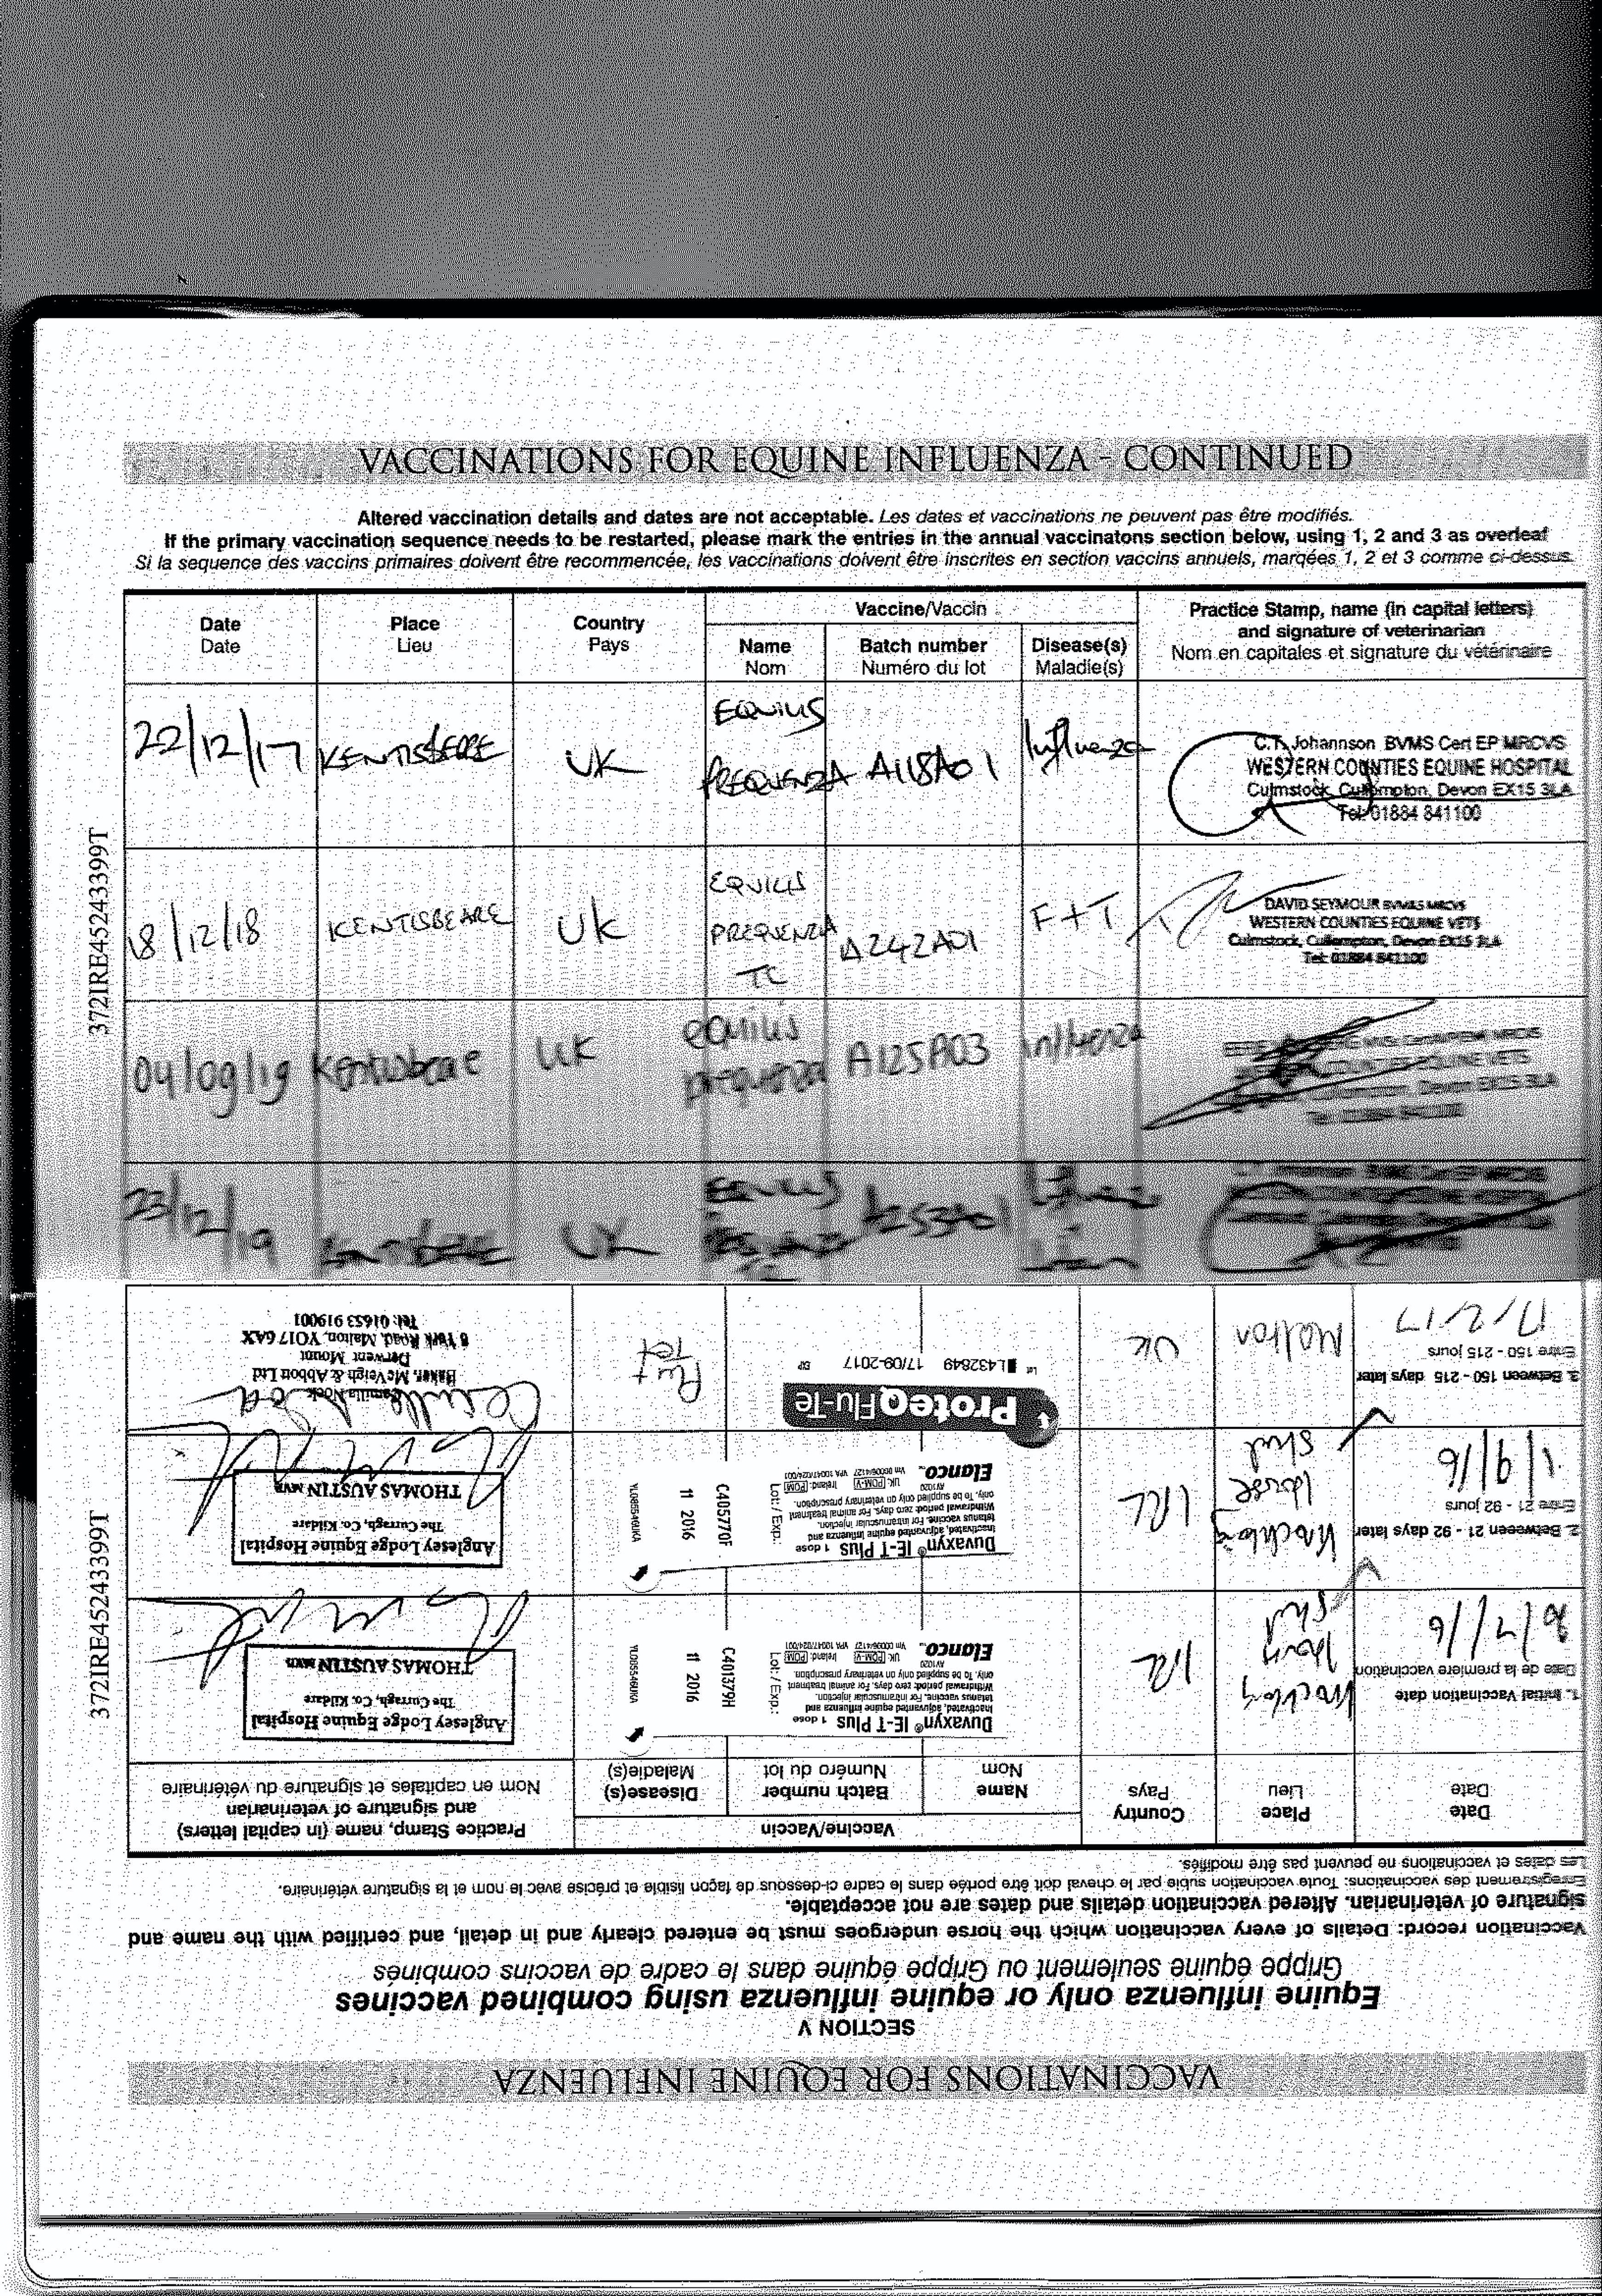 VACCINATIONS FOR EQUINE INFLUENZA - CONTINUED
Altered vaccination details and dates are not acceptable. Les dates et vaccinations ne peuvent pas être modifiés.
If the primary vaccination sequence needs to be restarted, please mark the entries in the annual vaccinatons section below, using 1, 2 and 3 as overleaf
Si la sequence des vaccins primaires doivent être recommencée, les vaccinations doivent être inscrites en section vaccins annuels, marqées 1, 2 et 3 comme ci-dessus.
Date Place Country Vaccine/Vaccin Practice Stamp, name (in capital letters)
Date Lieu Pays and signature of veterinarian
Name Batch number Disease(s) Nom en capitales et signature du vétérinaire
Nom Numéro du lot Maladie(s)
22/12/17 KENTISBEARE UK EQUILIS PREQUENZA A118A01 Influenza
C.T. Johannson BVMS Cert EP MRCVS
WESTERN COUNTIES EQUINE HOSPITAL
Culmstock, Cullompton, Devon EX15 3LA
Tel: 01884 841100
18/12/18 KENTISBEARE UK EQUILIS PREQUENZA TC A242A01 F+T
DAVID SEYMOUR BVM&S MRCVS
WESTERN COUNTIES EQUINE VETS
Culmstock, Cullompton, Devon EX15 3LA
Tel: 01884 841100
04/09/19 Kentisbeare UK equilis prequenza A125A03 influenza
COUNTIES EQUINE VETS
Devon EX15 3LA
23/12/19 UK EQUILIS
372IRE45243399T
VACCINATIONS FOR EQUINE INFLUENZA
SECTION V
Equine influenza only or equine influenza using combined vaccines
Grippe équine seulement ou Grippe équine dans le cadre de vaccins combinés
Vaccination record: Details of every vaccination which the horse undergoes must be entered clearly and in detail, and certified with the name and
signature of veterinarian. Altered vaccination details and dates are not acceptable.
Enregistrement des vaccinations: Toute vaccination subie par le cheval doit être portée dans le cadre ci-dessous de façon lisible et précise avec le nom et la signature vétérinaire.
Les dates et vaccinations ne peuvent pas être modifiés.
Date Place Country Vaccine/Vaccin Practice Stamp, name (in capital letters)
Date Lieu Pays and signature of veterinarian
Name Batch number Disease(s) Nom en capitales et signature du vétérinaire
Nom Numéro du lot Maladie(s)
1. Initial Vaccination date
Date de la premiere vaccination
/7/16 Stud IRL
Duvaxyn® IE-T Plus 1 dose
Inactivated, adjuvanted equine influenza and
tetanus vaccine. For intramuscular injection.
Withdrawal period: zero days. For animal treatment
only. To be supplied only on veterinary prescription.
AV1020 UK: POM-V Ireland: POM
Elanco Vm 00006/4127 VPA 10047/024/001
Lot: / Exp.:
C401379H
11 2016
YL085546UKIA
Anglesey Lodge Equine Hospital
The Curragh, Co. Kildare
THOMAS AUSTIN MVB
2. Between 21 - 92 days later
Entre 21 - 92 jours
1/9/16 House Stud IRL
Duvaxyn® IE-T Plus 1 dose
Inactivated, adjuvanted equine influenza and
tetanus vaccine. For intramuscular injection.
Withdrawal period: zero days. For animal treatment
only. To be supplied only on veterinary prescription.
AV1020 UK: POM-V Ireland: POM
Elanco Vm 00006/4127 VPA 10047/024/001
Lot: / Exp.:
C405770F
11 2016
YL085546UKIA
Anglesey Lodge Equine Hospital
The Curragh, Co. Kildare
THOMAS AUSTIN MVB
3. Between 150 - 215 days later
Entre 150 - 215 jours
17/2/17 Malton UK
ProteqFlu-Te
Lot L432849 17/09-2017 EXP
Flu + Tet
Camilla Nock
Baker, McVeigh & Abbott Ltd
Derwent Mount
8 York Road, Malton, YO17 6AX
Tel: 01653 919001
372IRE45243399T